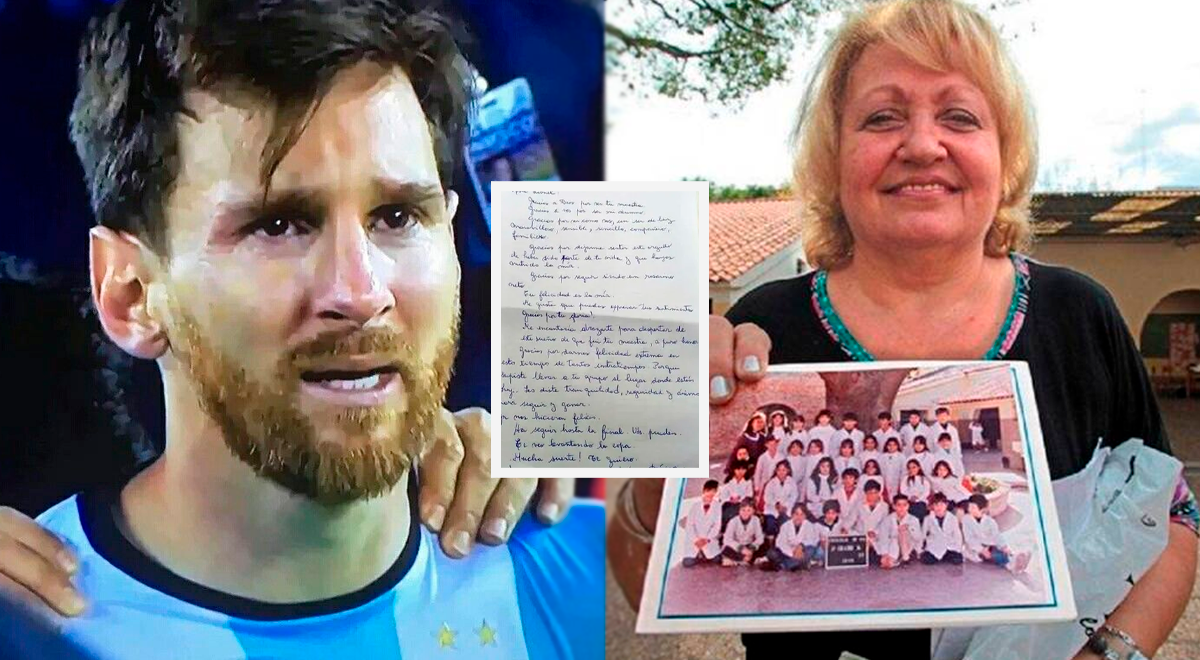 Gracias a Dios por ser tu maestra
Gracias a vos por ser mi alumno
Gracias por ser como sos, un ser de luz
maravilloso, sensible, sencillo, compasivo,
familiero.
Gracias por hacerme sentir este orgullo
de haber sido parte de tu vida y que hayas
la mía.
Gracias por seguir siendo en
Tu felicidad es la mía.
que puedas expresar tus sentimientos
Gracias por tu gloria!
Me encantaría abrazarte para despertar de
este sueño de que fui tu maestra, a
Gracias por darnos felicidad extrema en
este tiempo de tantos contratiempos. Porque
supiste llevar a tu grupo al lugar donde están
hoy. Les diste tranquilidad, seguridad y
para seguir y ganar.
nos hicieron felices.
A seguir hasta la final. Uds. pueden.
Te veo levantando la copa
Mucha suerte! Te quiero